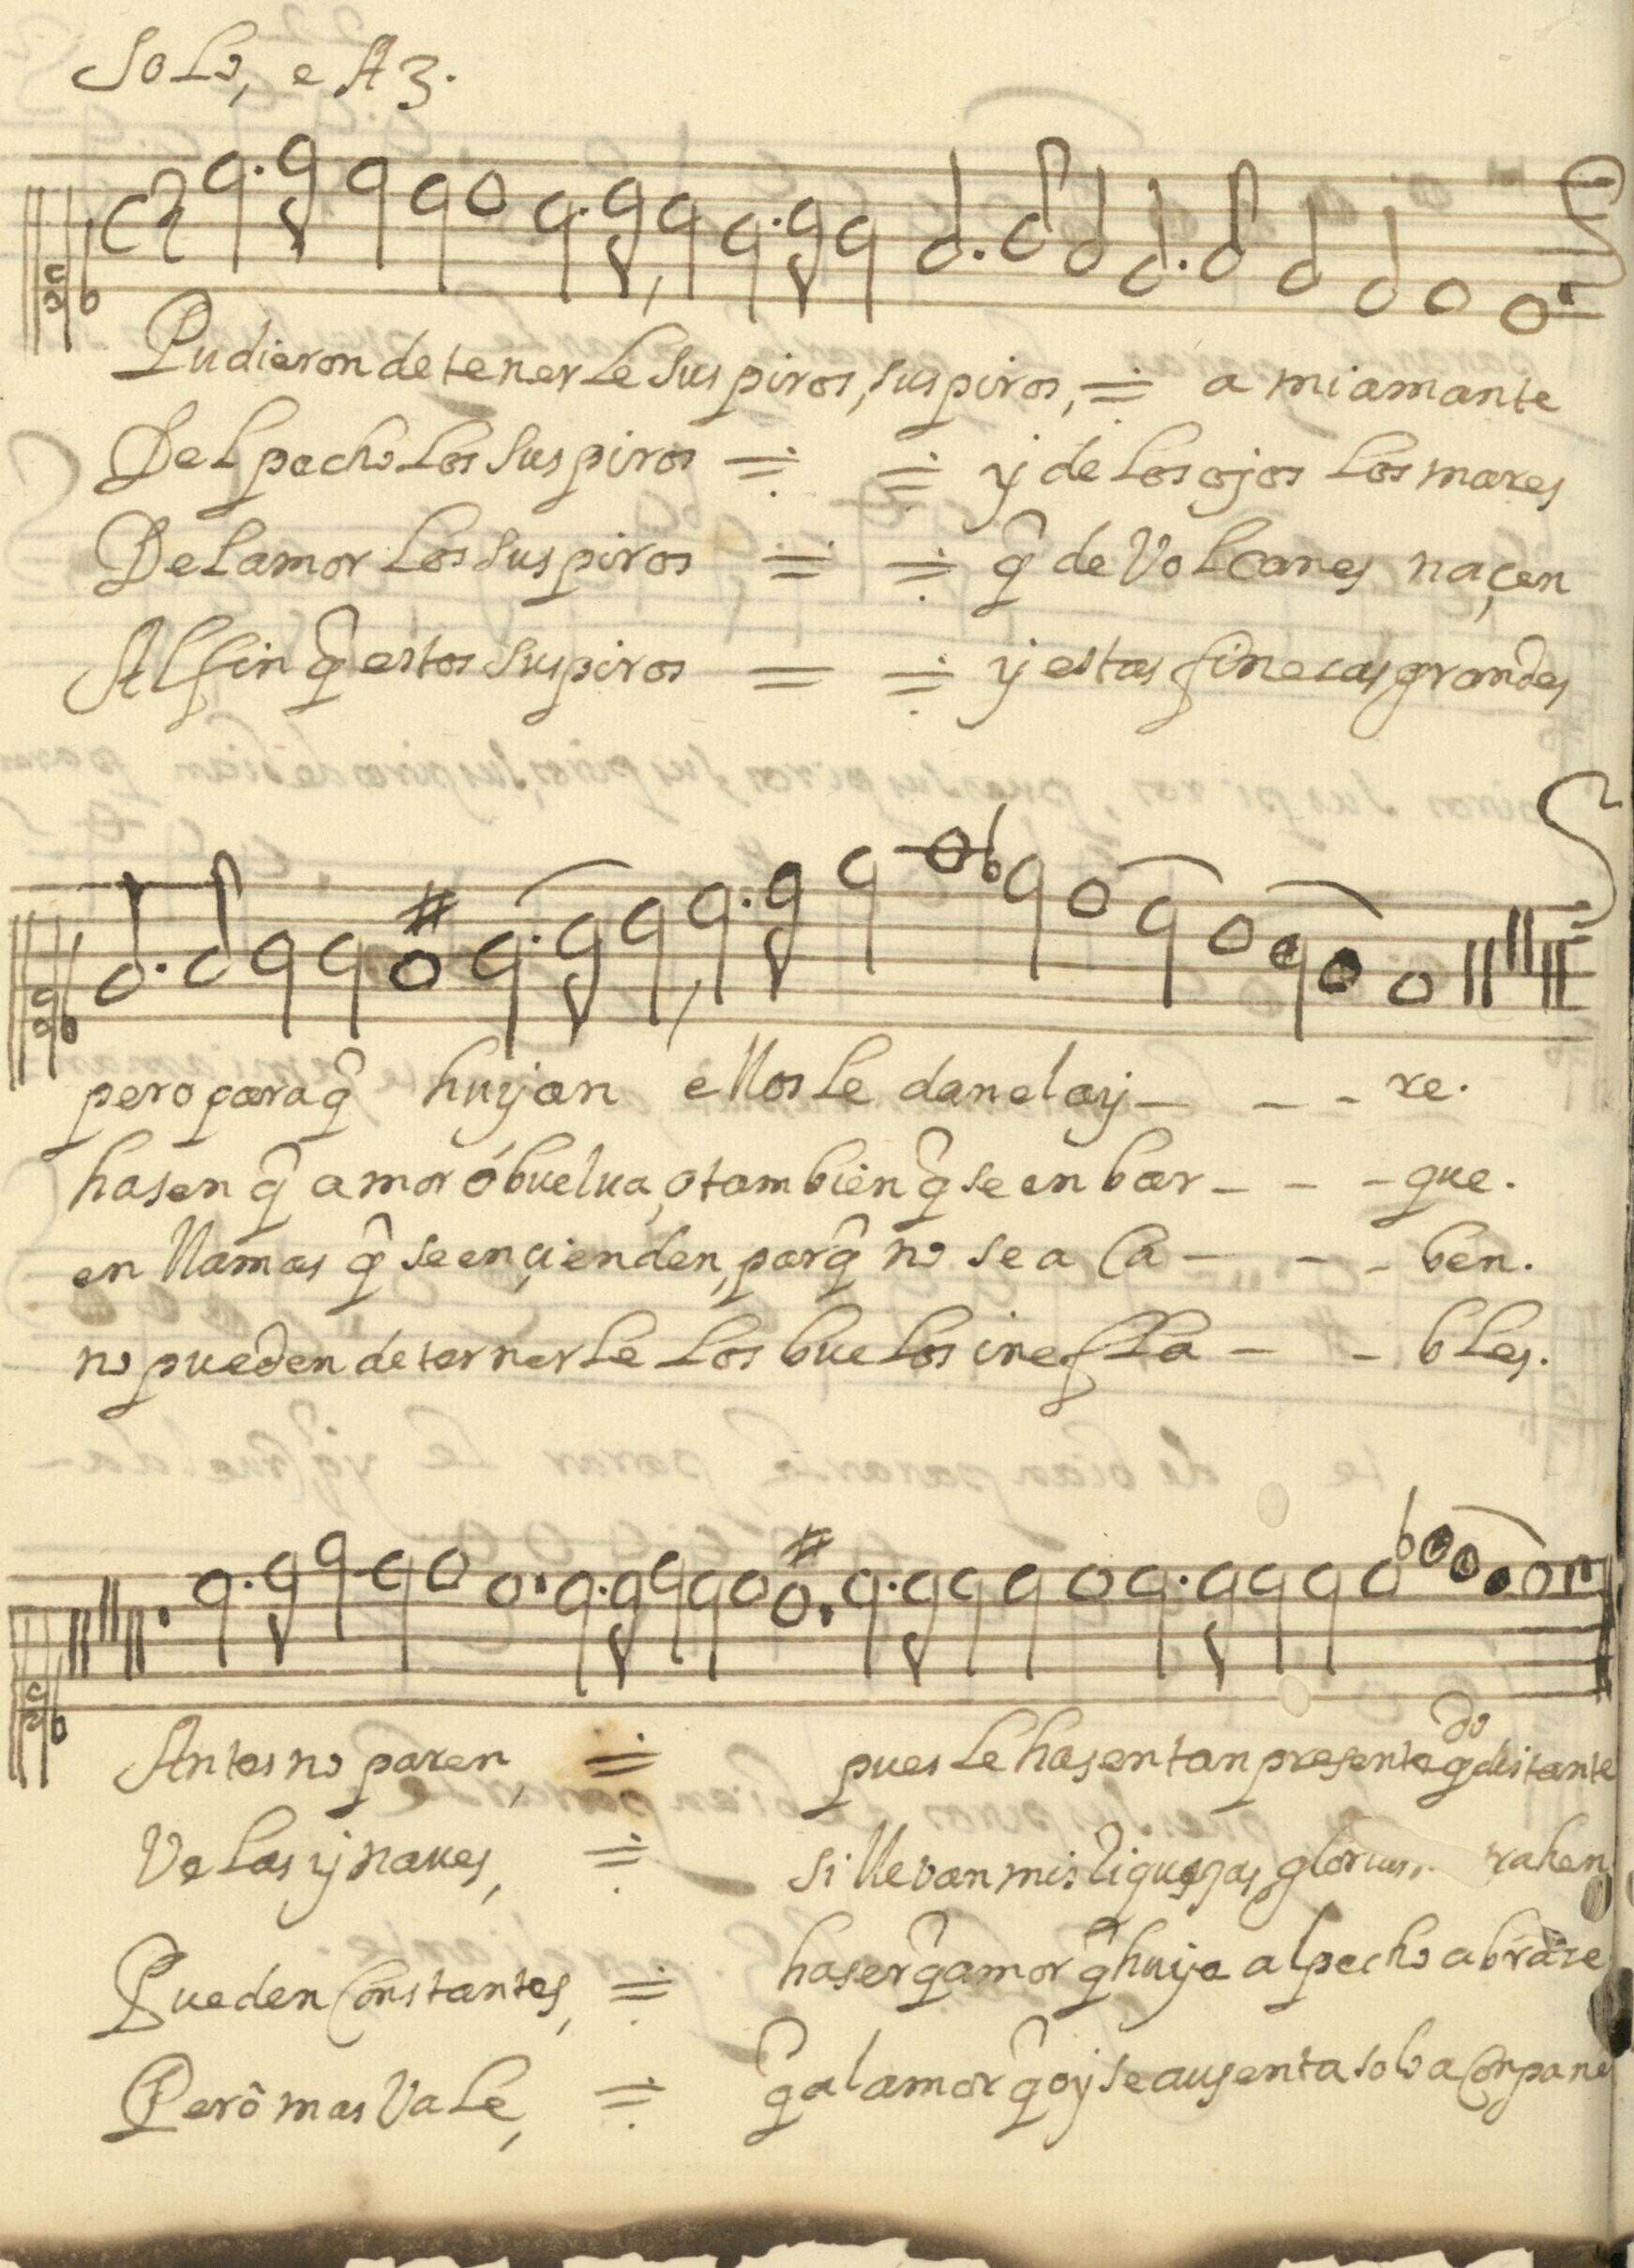 Solo, e A 3.
Pudieron detenerle suspiros, suspiros, a mi amante
Del pecho los suspiros y de los ojos los mares
Del amor los suspiros, q̂ de Volcanes naçen
Al fin q̂ estos suspiros y estas finecas grandes
pero para q̂ huyan ellos le dan el ay- - - re.
hasen q̂ amor ó buelua, o tambien q̂ se enbar- - - que.
en llamas q̂ se ençienden, porq̂ no se a Ca- - - ben.
no pueden deternerle los buelos inefla- - bles.
Antes no paren, pues le hasen tan presente qdo distante
Velas y naues, si llevan mis glorias rahen
Pueden Constantes, haser q̂ amor q̂ huye al pecho abrase
Perô mas Vale, q̂ al amor q̂ oy se ausenta solo aConpane